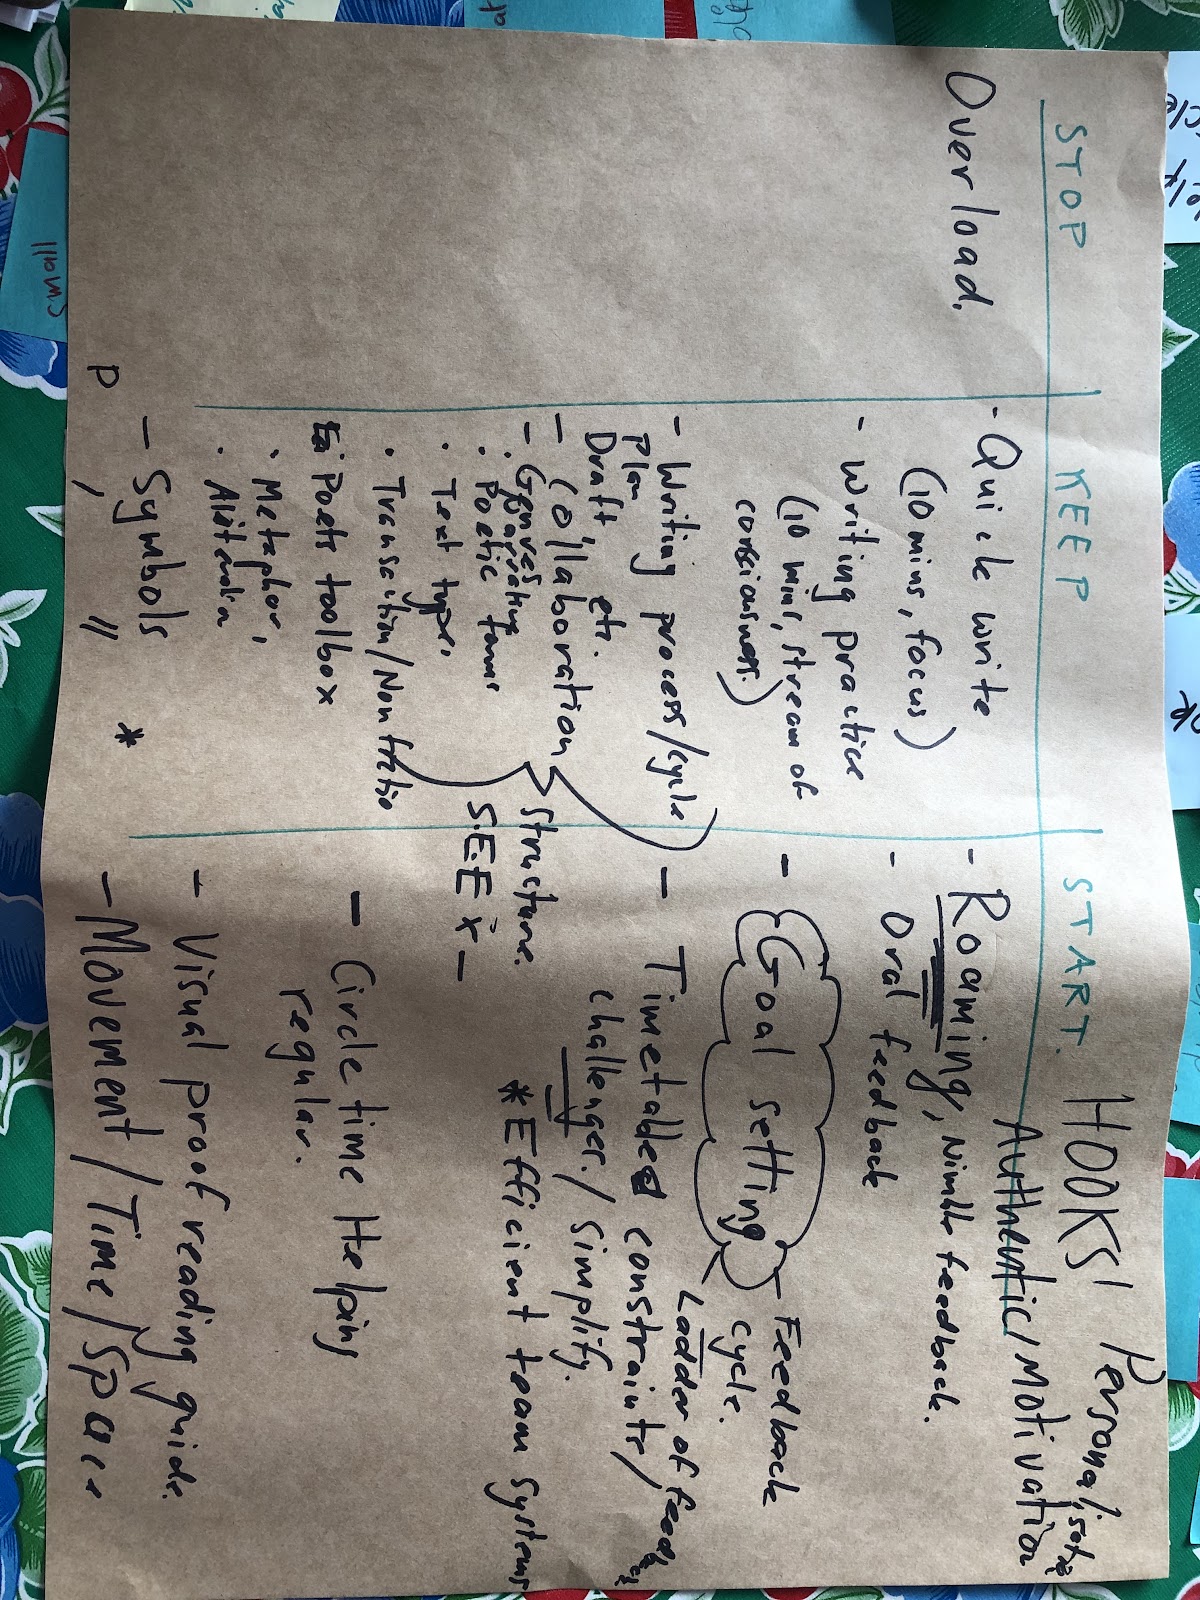 STOP
Overload.
KEEP
- Quick write
(10 mins, focus)
- Writing practice
(10 mins, stream of
consciousness)
- Writing process/cycle
Plan
Draft, etc.
- Collaboration
- Genres
· Narrative
· Poetic forms
· Text types,
· Transaction/Non
Poets toolbox
· Metaphor,
·
- Symbols *
" "
P
Structure.
S.E.E X -
START.
HOOKS!
Authentic/Motivation
- Roaming, Nimble feedback.
- Oral feedback
- Goal setting
Feedback
cycle.
Ladder of
- Timetabled constraints/
challenges./Simplify.
* Efficient team systems
- Circle time Helping
regular.
- Visual proof reading guide.
- Movement/Time/Space
small